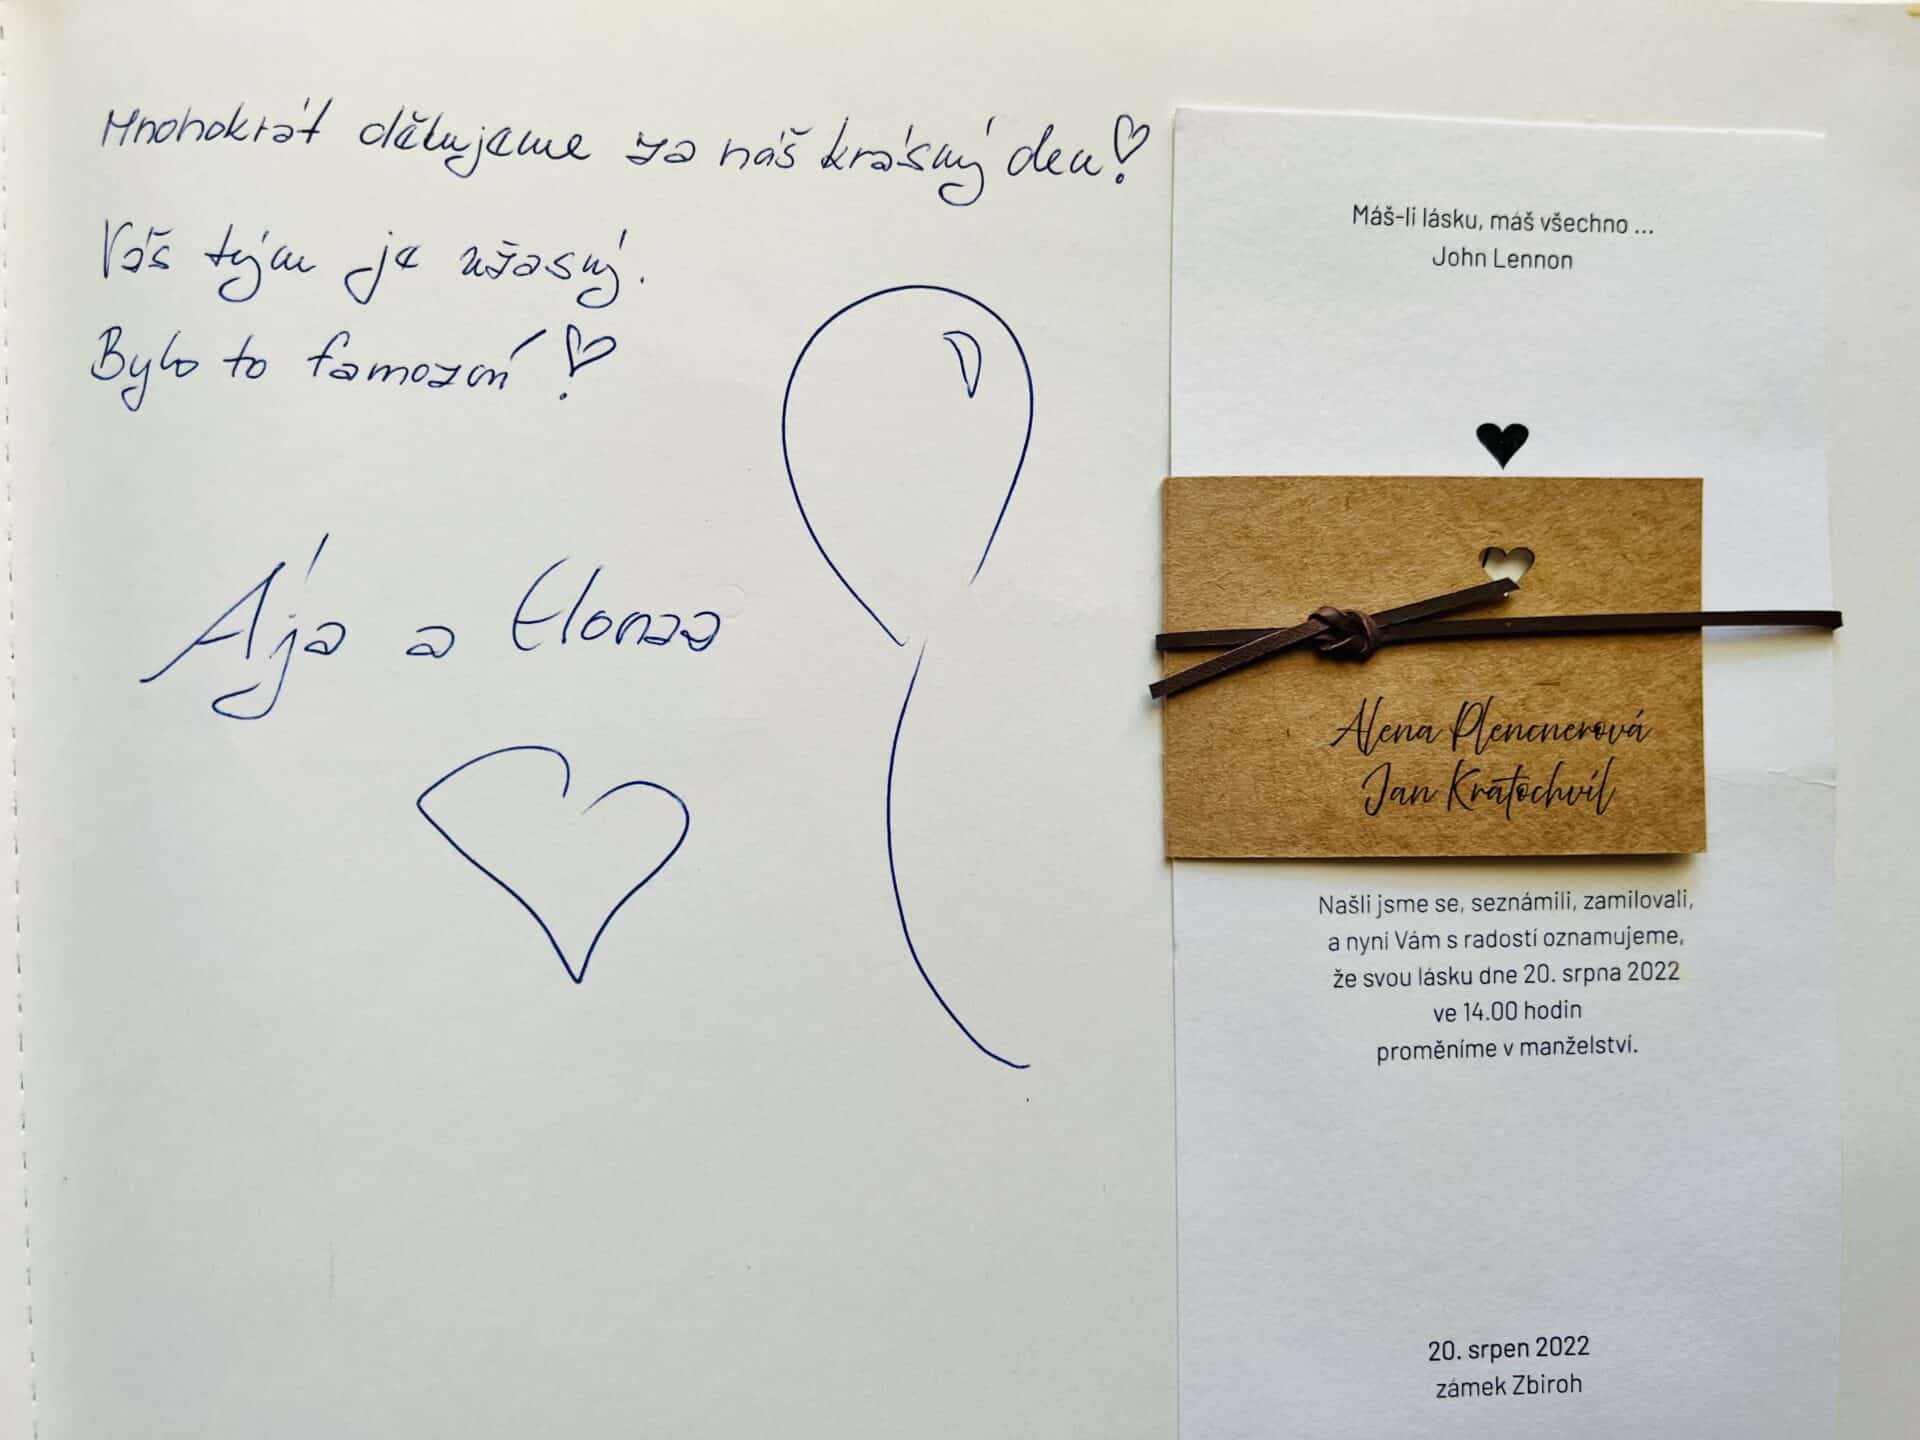 Mnohokrát děkujeme za náš krásný den!
Váš tým je úžasný.
Bylo to famozní!
Ája a Honza
Máš-li lásku, máš všechno ...
John Lennon
Alena Plencnerová
Jan Kratochvíl
Našli jsme se, seznámili, zamilovali,
a nyní Vám s radostí oznamujeme,
že svou lásku dne 20. srpna 2022
ve 14.00 hodin
proměníme v manželství.
20. srpen 2022
zámek Zbiroh